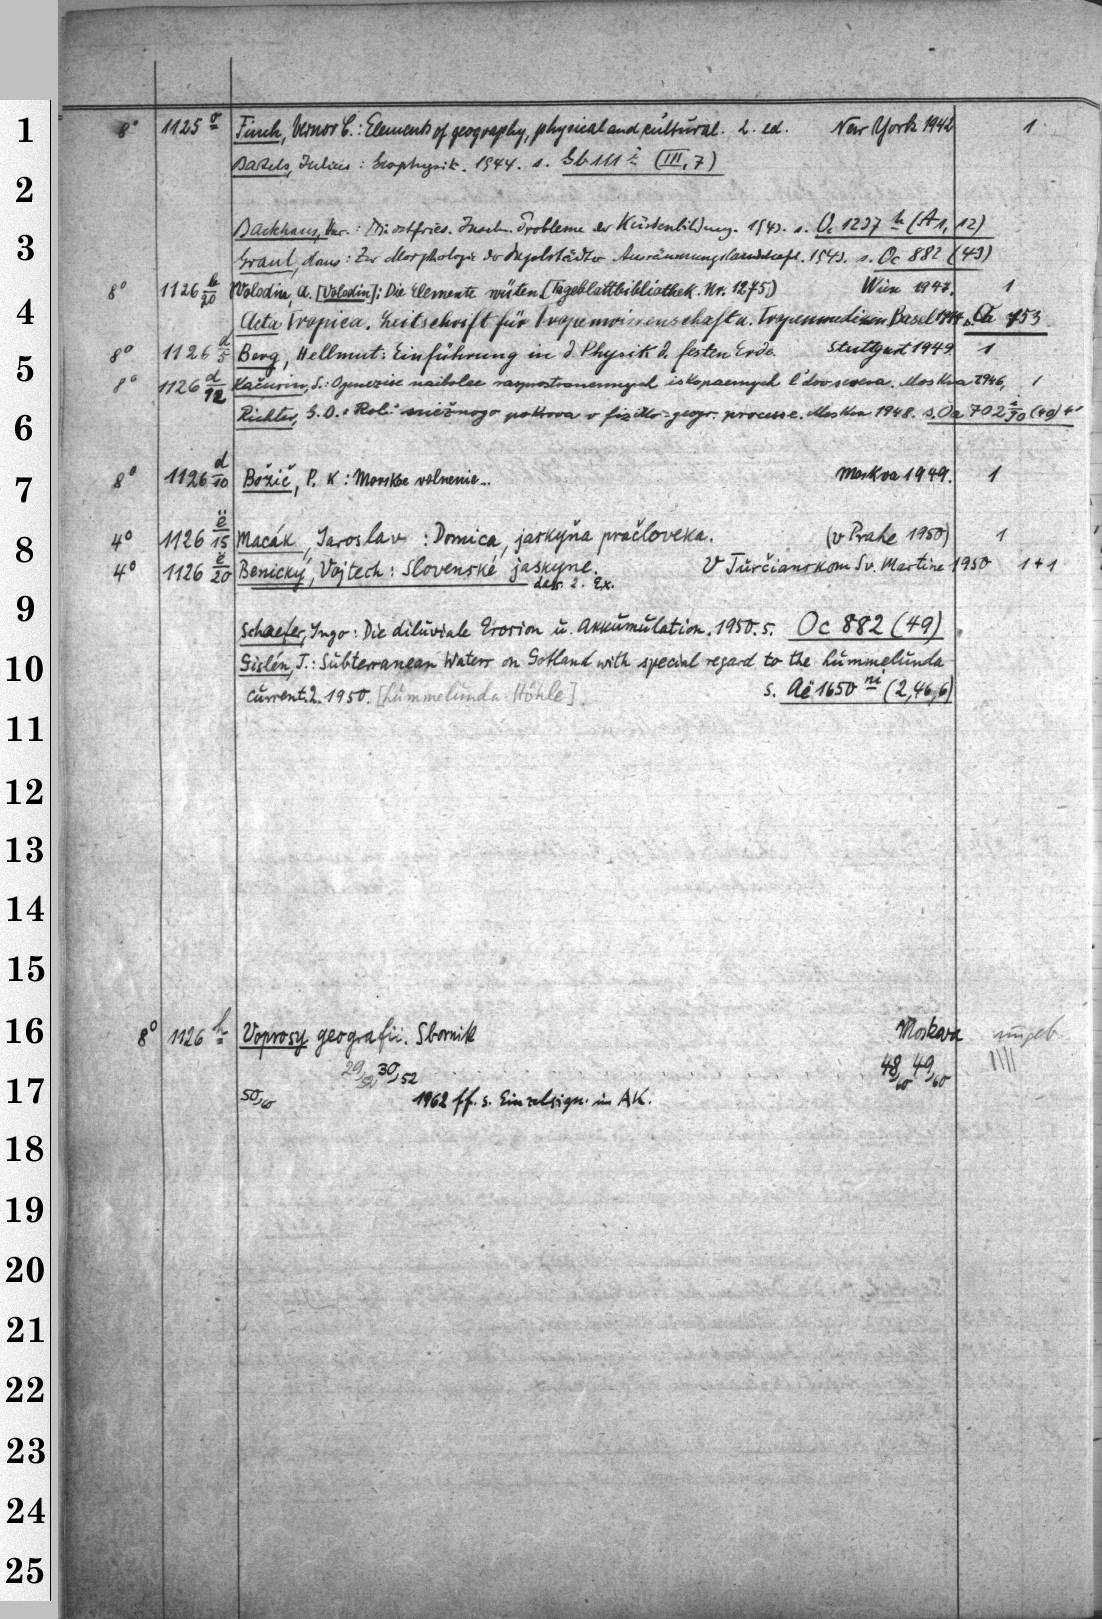 1
8° 1125 Finch, Vernor C.: Elements of geography, physical and cultural. 2. ed. New York 1942 1
Bartels, Julius: Geophysik. 1944. s. Gb 111 i (III, 7)
2
Backhaus, : Die ostfries. Inseln. Probleme der Küstenbildung. 1943. s. Oc 1237 h (A 1, 12)
3
Graul, Hans: Zur Morphologie der Ingolstädter Ausräumungslandschaft. 1943. s. Oc 882 (43)
8° 1126 b/20 Wolodin, A. [Volodin]: Die Elemente wüten [Tageblattbibliothek. Nr. 1275) Wien 1947. 1
4
Acta Tropica. Zeitschrift für Tropenwissenschaft u. Tropenmedizin Basel 1944 s. 753
8° 1126 d/5 Berg, Hellmut: Einführung in d. Physik d. festen Erde. Stuttgart 1949 1
5
8° 1126 d/12 Kačurin, S.: naibolee rasprostranennych iskopaemych l'dov severa. Moskva 1946, 1
Richter, G. D.: Rol' snežnogo pokrova v fiziko-geogr. processe. Moskva 1948. s. Oa 702 i/30 (40) 4°
6
8° 1126 d/10 Božič, P. K: Morskoe volnenie.. Moskva 1949. 1
7
4° 1126 ë/15 Macák, Jaroslav: Domica, jaskyňa pračloveka. (v Prahe 1950) 1
8
4° 1126 ë/20 Benický, Vojtech: Slovenské jaskyne. V Turčianskom Sv. Martine 1950 1 + 1
dass. 2. Ex.
9
Schaefer, Ingo: Die diluviale Erosion u. Akkumulation. 1950. s. Oc 882 (49)
10
Gislén, T.: Subterranean Waters on Gotland with special regard to the Lummelunda
current. 2. 1950. [Lummelunda-Höhle] s. Aë 1650 ni (2,46,6)
11
12
13
14
15
16
8° 1126 h Voprosy geografii. Sbornik Moskva ungeb
29,52 30,52 48,60 49,60 ||||
17
50,60 1962 ff. s. Einzelsign. in AK.
18
19
20
21
22
23
24
25